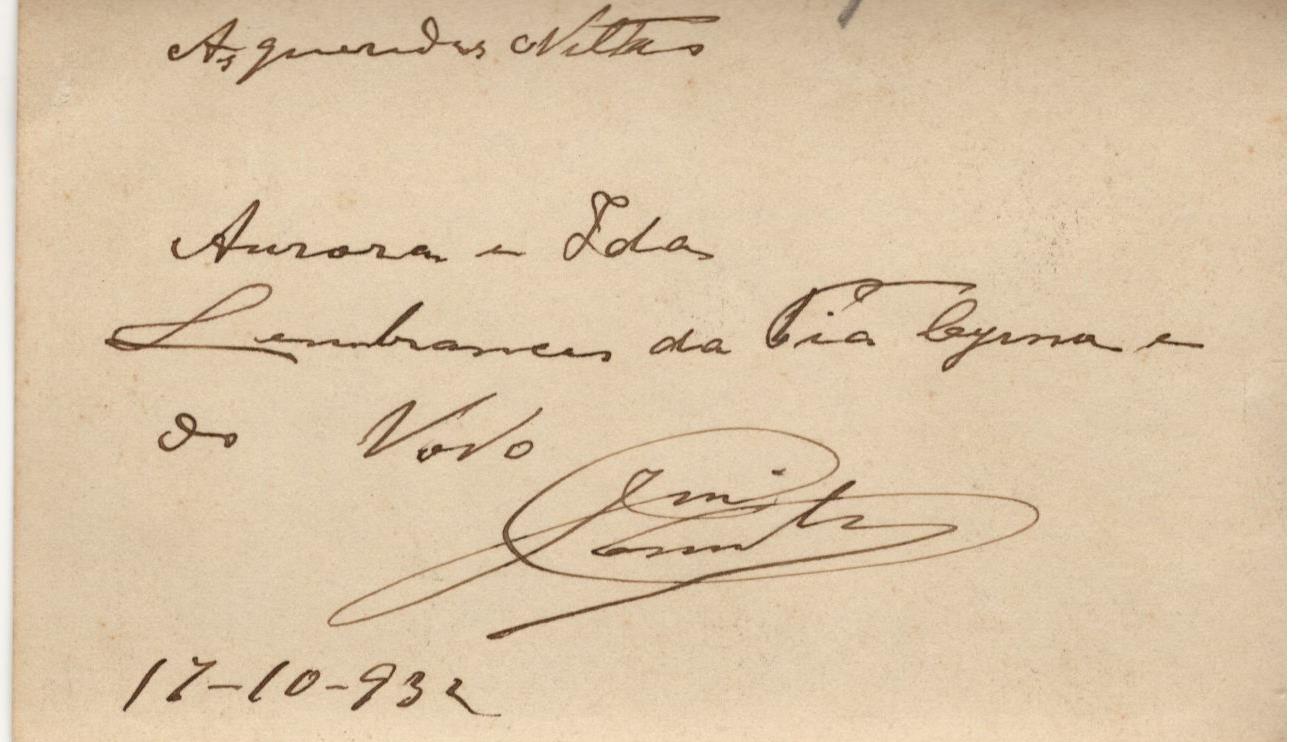 As queridas Nettas
Aurora e Ida
Lembranças da Tia Cyrma e
do Vovo
17-10-932